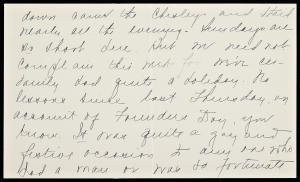 down came the Chesleys and stayed
nearly all the evening. Sundays are
so short here. But we need not
complain this week for we ce-
tainly had quite a holiday. No
lessons since last Thursday, on
account of Founders Day, you
know. It was quite a gay and
festive occasion to any one who
had a man or was so fortunate